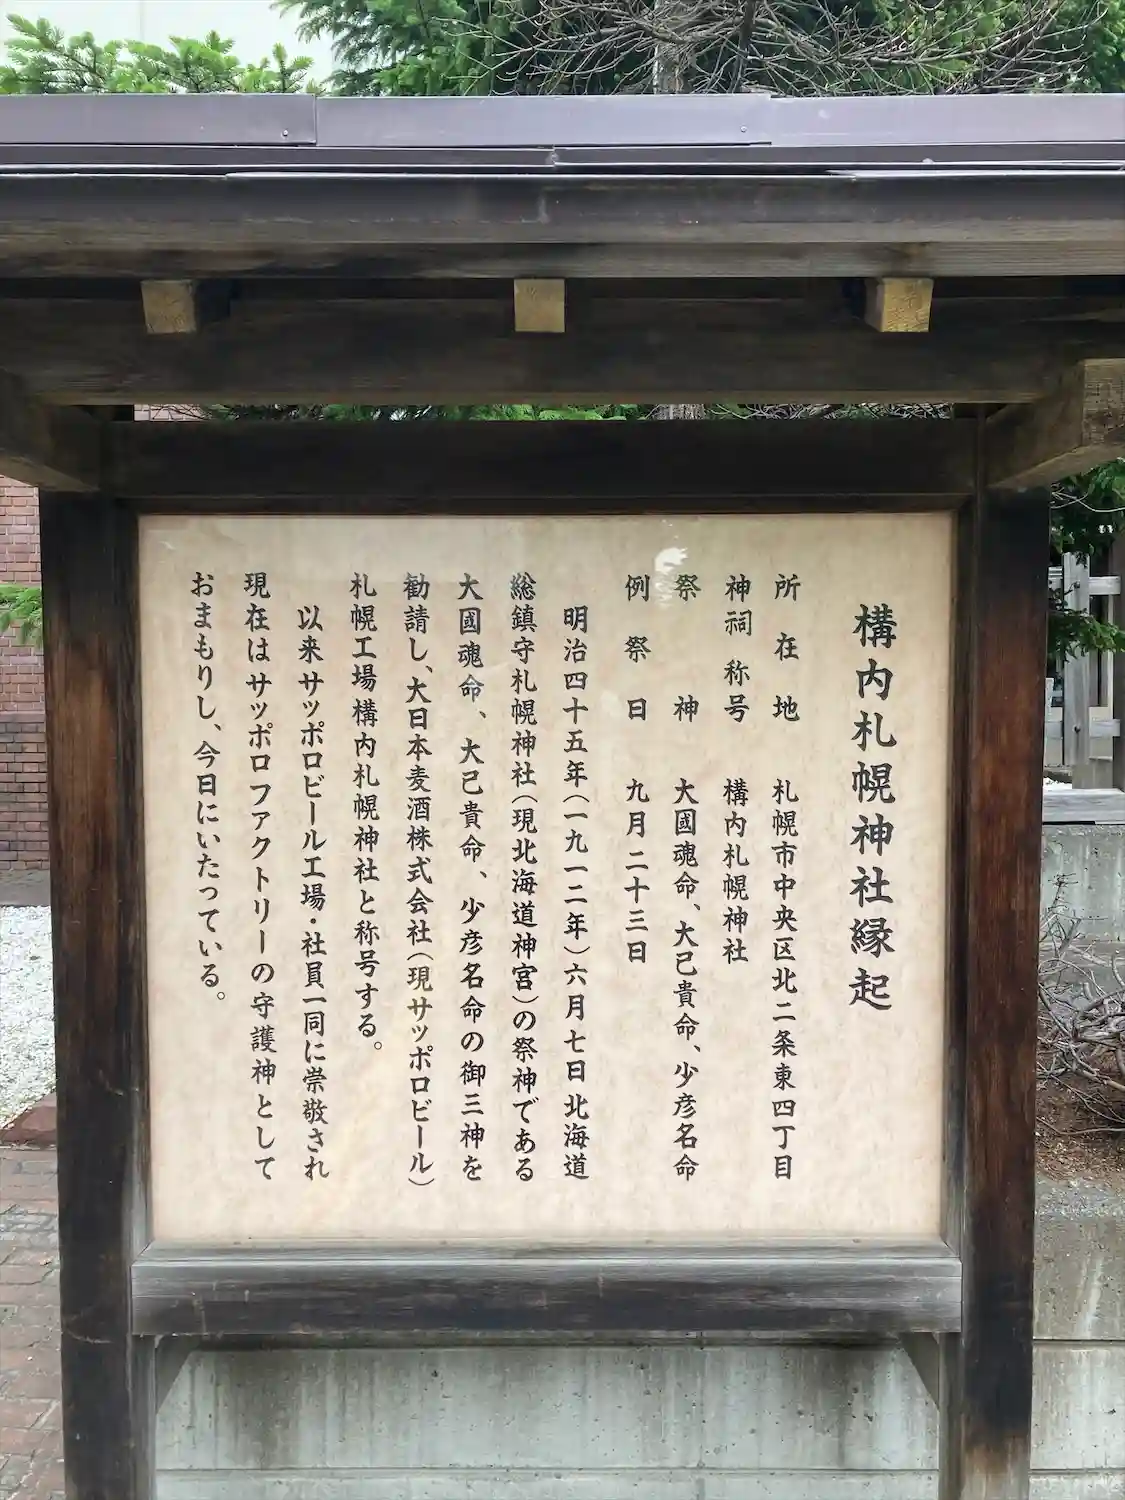 構内札幌神社縁起
所在地 札幌市中央区北二条東四丁目
神祠称号 構内札幌神社
祭神 大國魂命、大己貴命、少彦名命
例祭日 九月二十三日
明治四十五年(一九一二年)六月七日北海道
総鎮守札幌神社(現北海道神宮)の祭神である
大國魂命、大己貴命、少彦名命の御三神を
勧請し、大日本麦酒株式会社(現サッポロビール)
札幌工場構内札幌神社と称号する。
以来サッポロビール工場・社員一同に崇敬され
現在はサッポロファクトリーの守護神として
おまもりし、今日にいたっている。